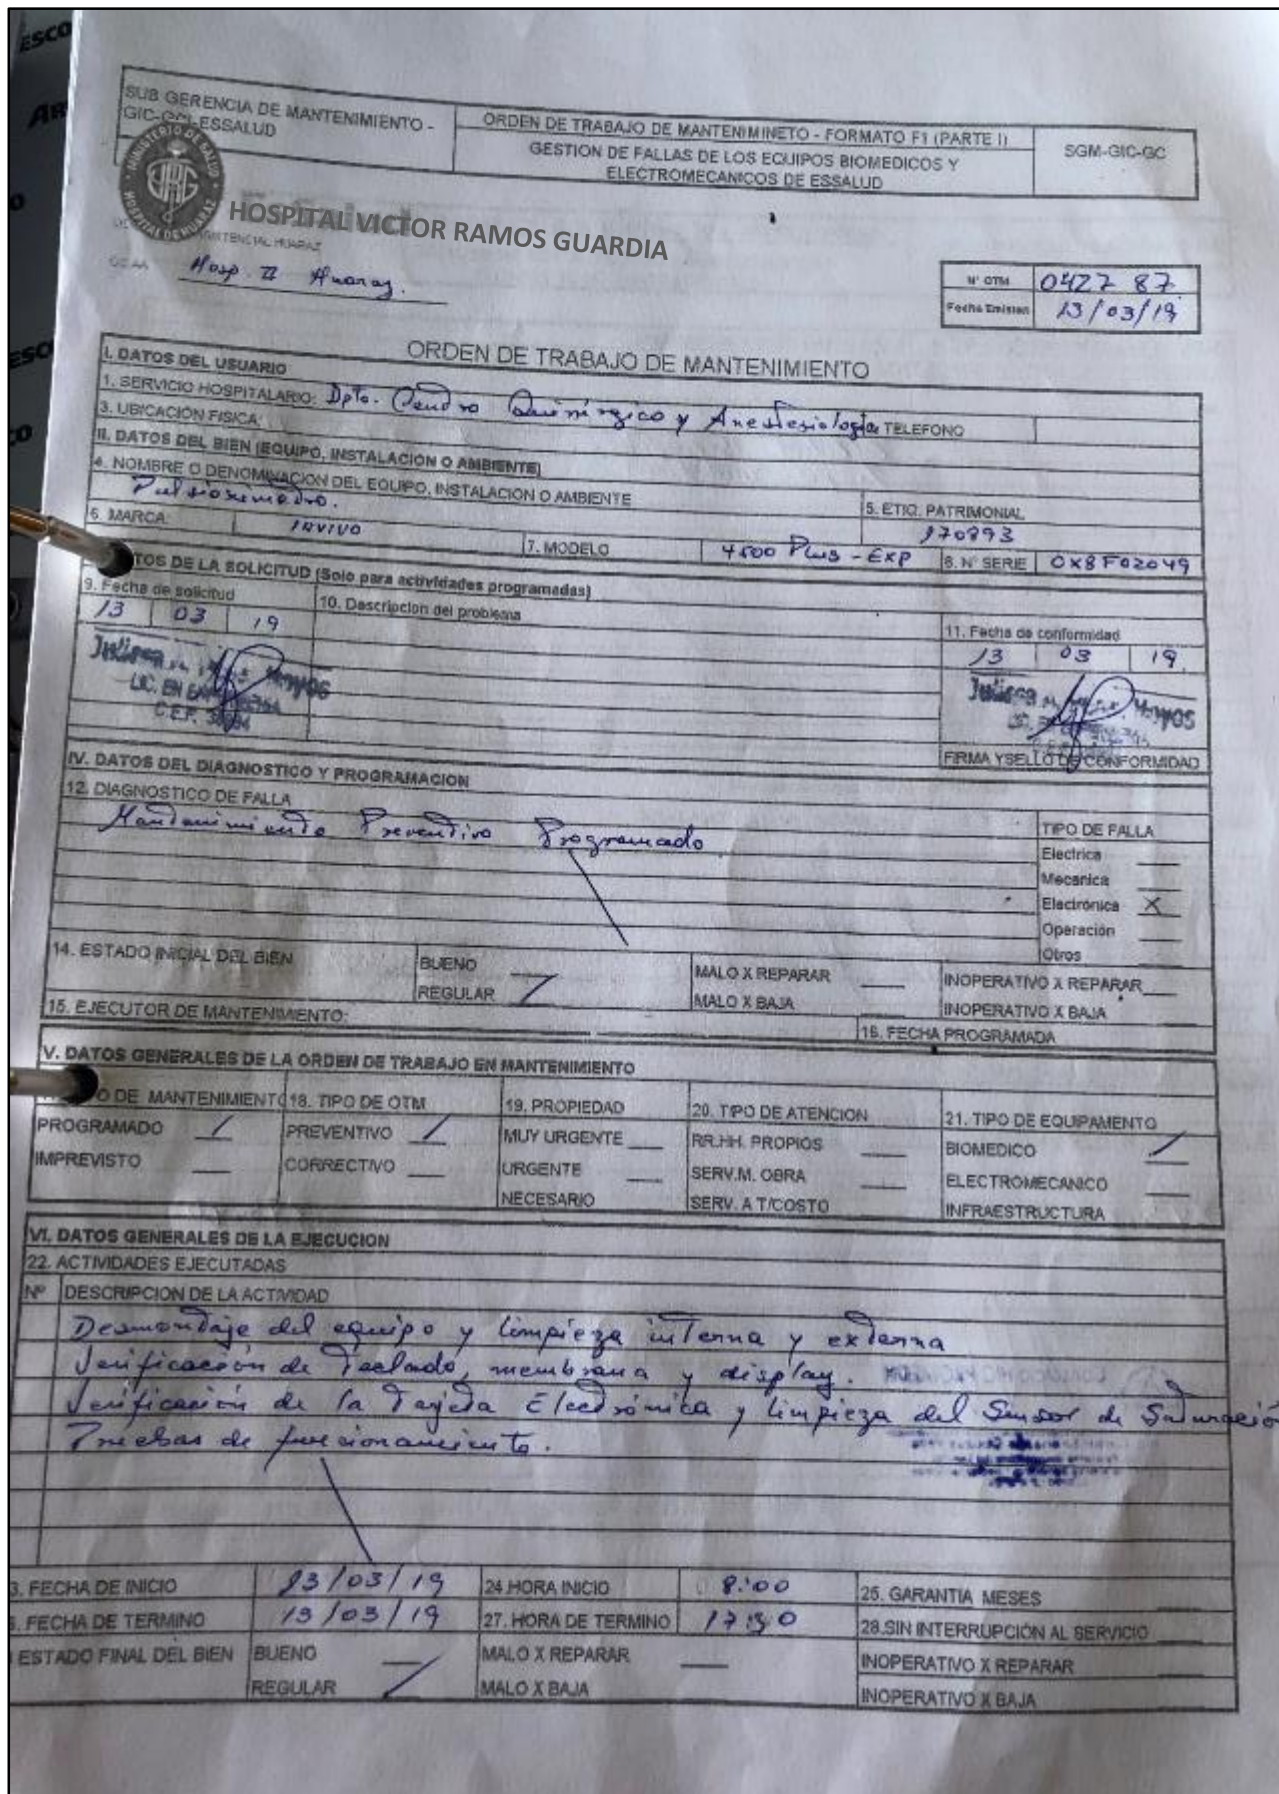 ESCO
SUB GERENCIA DE MANTENIMIENTO -
GIC-GCI-ESSALUD
ORDEN DE TRABAJO DE MANTENIMINETO - FORMATO F1 (PARTE I)
GESTION DE FALLAS DE LOS EQUIPOS BIOMEDICOS Y
ELECTROMECANICOS DE ESSALUD
SGM-GIC-GC
MINISTERIO DE SALUD
HOSPITAL DE HUARAZ
HOSPITAL VICTOR RAMOS GUARDIA
HUARAZ
Hosp. II Huaraz.
N° OTM 0427 87
Fecha Emision 13/03/19
ORDEN DE TRABAJO DE MANTENIMIENTO
I. DATOS DEL USUARIO
1. SERVICIO HOSPITALARIO: Dpto. Centro Quirúrgico y Anestesiologia
3. UBICACIÓN FISICA: TELEFONO
II. DATOS DEL BIEN (EQUIPO, INSTALACION O AMBIENTE)
4. NOMBRE O DENOMINACION DEL EQUIPO, INSTALACION O AMBIENTE
Pulsioximetro.
5. ETIQ. PATRIMONIAL
170893
6. MARCA: INVIVO
7. MODELO 4500 Plus - EXP
8. N° SERIE 0X8F02049
TOS DE LA SOLICITUD (Solo para actividades programadas)
9. Fecha de solicitud
13 03 19
10. Descripcion del problema
11. Fecha de conformidad
13 03 19.
LIC. EN
C.E.P.
FIRMA Y SELLO DE CONFORMIDAD
IV. DATOS DEL DIAGNOSTICO Y PROGRAMACION
12. DIAGNOSTICO DE FALLA
Mantenimiento Preventivo Programado
TIPO DE FALLA
Electrica
Mecanica
Electrónica X
Operación
Otros
14. ESTADO INICIAL DEL BIEN
BUENO
REGULAR /
MALO X REPARAR
MALO X BAJA
INOPERATIVO X REPARAR
INOPERATIVO X BAJA
15. EJECUTOR DE MANTENIMIENTO:
16. FECHA PROGRAMADA
V. DATOS GENERALES DE LA ORDEN DE TRABAJO EN MANTENIMIENTO
O DE MANTENIMIENTO 18. TIPO DE OTM 19. PROPIEDAD 20. TIPO DE ATENCION 21. TIPO DE EQUIPAMENTO
PROGRAMADO / PREVENTIVO / MUY URGENTE RR.HH. PROPIOS BIOMEDICO /
IMPREVISTO CORRECTIVO URGENTE SERV.M. OBRA ELECTROMECANICO
NECESARIO SERV. A T/COSTO INFRAESTRUCTURA
VI. DATOS GENERALES DE LA EJECUCION
22. ACTIVIDADES EJECUTADAS
Nº DESCRIPCION DE LA ACTIVIDAD
Desmontaje del equipo y limpieza interna y externa
Verificación de Teclado, membrana y display.
Verificación de la Tarjeta Electrónica y limpieza del Sensor de Saturación
Pruebas de funcionamiento.
3. FECHA DE INICIO 13/03/19 24.HORA INICIO 8:00 25. GARANTIA MESES
FECHA DE TERMINO 13/03/19 27. HORA DE TERMINO 17:30 28.SIN INTERRUPCIÓN AL SERVICIO
ESTADO FINAL DEL BIEN BUENO MALO X REPARAR INOPERATIVO X REPARAR
REGULAR / MALO X BAJA INOPERATIVO X BAJA